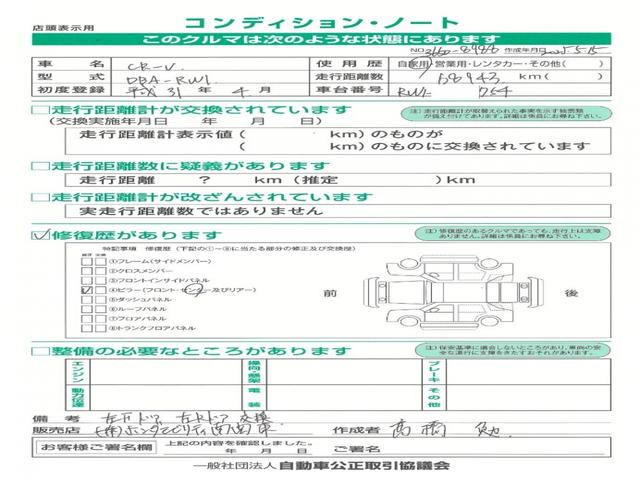 店頭表示用
コンディション・ノート
このクルマは次のような状態にあります
NO. 3660-8986 作成年月日 2025.5.15
車名 CR-V 使用歴 自家用・営業用・レンタカー・その他( )
型式 DBA-RW1 走行距離数 68943 km( )
初度登録 平成31年4月 車台番号 RW1- 754
□走行距離計が交換されています
(交換実施年月日 年 月 日)
注)走行距離計が取替えられた事実を示す被票類が備え付けてあります。詳細は係員にお尋ね下さい。
走行距離計表示値( km)のものが
( km)のものに交換されています
□走行距離数に疑義があります
走行距離 ? km(推定 )km
□走行距離計が改ざんされています
実走行距離数ではありません
☑修復歴があります
注)修復歴のあるクルマであっても、走行上は支障ありません。詳細は係員にお尋ね下さい。
特記事項 修復歴(下記の①~⑧に当たる部分の修正及び交換歴)
修正 交換
□□①フレーム(サイドメンバー)
□□②クロスメンバー
□□③フロントインサイドパネル
☑□④ピラー(フロント・センター及びリアー)
□□⑤ダッシュパネル
□□⑥ルーフパネル
□□⑦フロアパネル
□□⑧トランクフロアパネル
前
後
□整備の必要なところがあります
注)保安基準に適合しないところがあり、車両の安全な運行に支障をきたすおそれがあります。
エンジン 操向・懸架 ブレーキ
動力伝達 電装 その他
備考 左Fドア 左Rドア 交換
販売店 (株)ホンダモビリティ南関東 作成者 高橋
お客様ご署名欄 上記の内容を確認しました。
年 月 日 ご署名
一般社団法人 自動車公正取引協議会